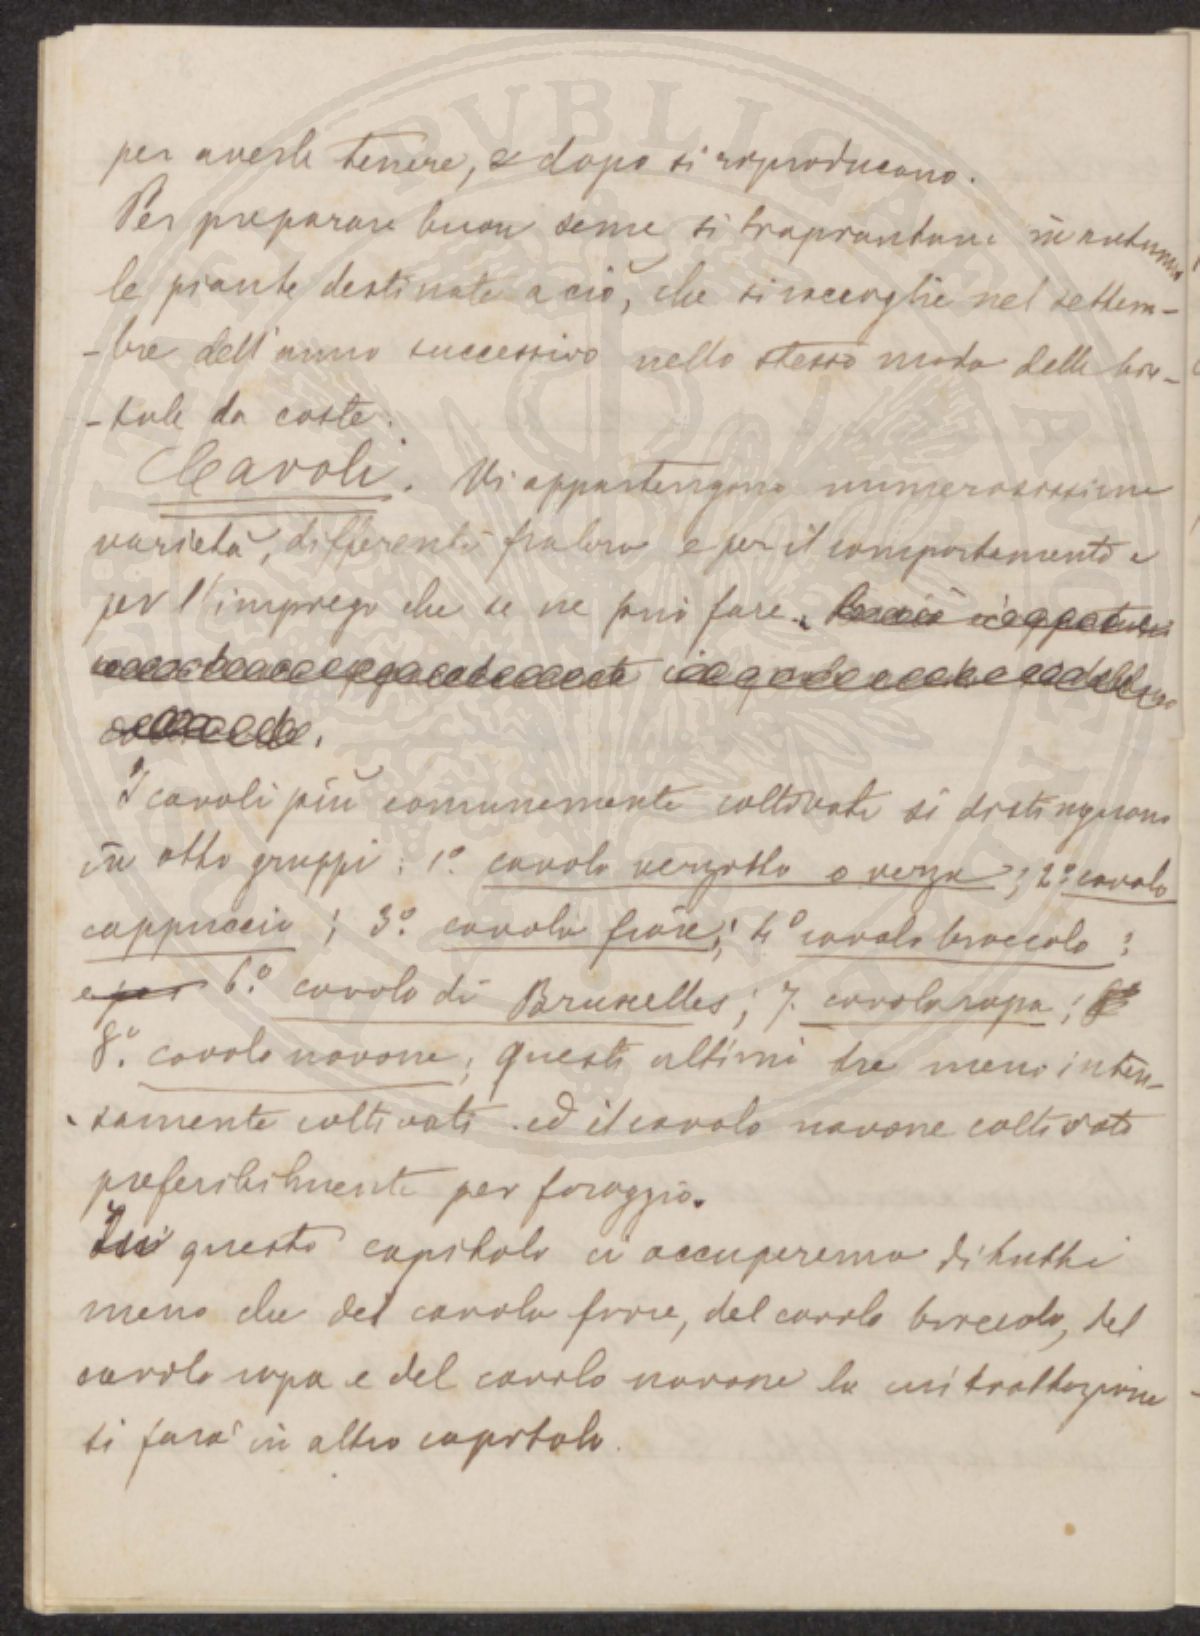 per averle tenere, e dopo si riproducono.
Per preparare buon seme si trapiantano in autunno
le piante destinate a ciò, che si raccoglie nel settem-
-bre dell'anno successivo nello stesso modo delle bie-
-tole da coste.
Cavoli. Vi appartengono numerosissime
varietà, differenti fra loro e per il comportamento e
per l'impiego che se ne può fare.
I cavoli più comunemente coltivati si distinguono
in otto gruppi: 1º. cavolo verzotto o verza; 2º. cavolo
cappuccio; 3º. cavolo fiore; 4º cavolo broccolo;
6º. cavolo di Bruxelles; 7. cavolo rapa;
8º. cavolo navone; questi ultimi tre meno inten-
samente coltivati ed il cavolo navone coltivato
preferibilmente per foraggio.
In questo capitolo ci occuperemo di tutti
meno che del cavolo fiore, del cavolo broccolo, del
cavolo rapa e del cavolo navone la cui trattazione
si farà in altro capitolo.